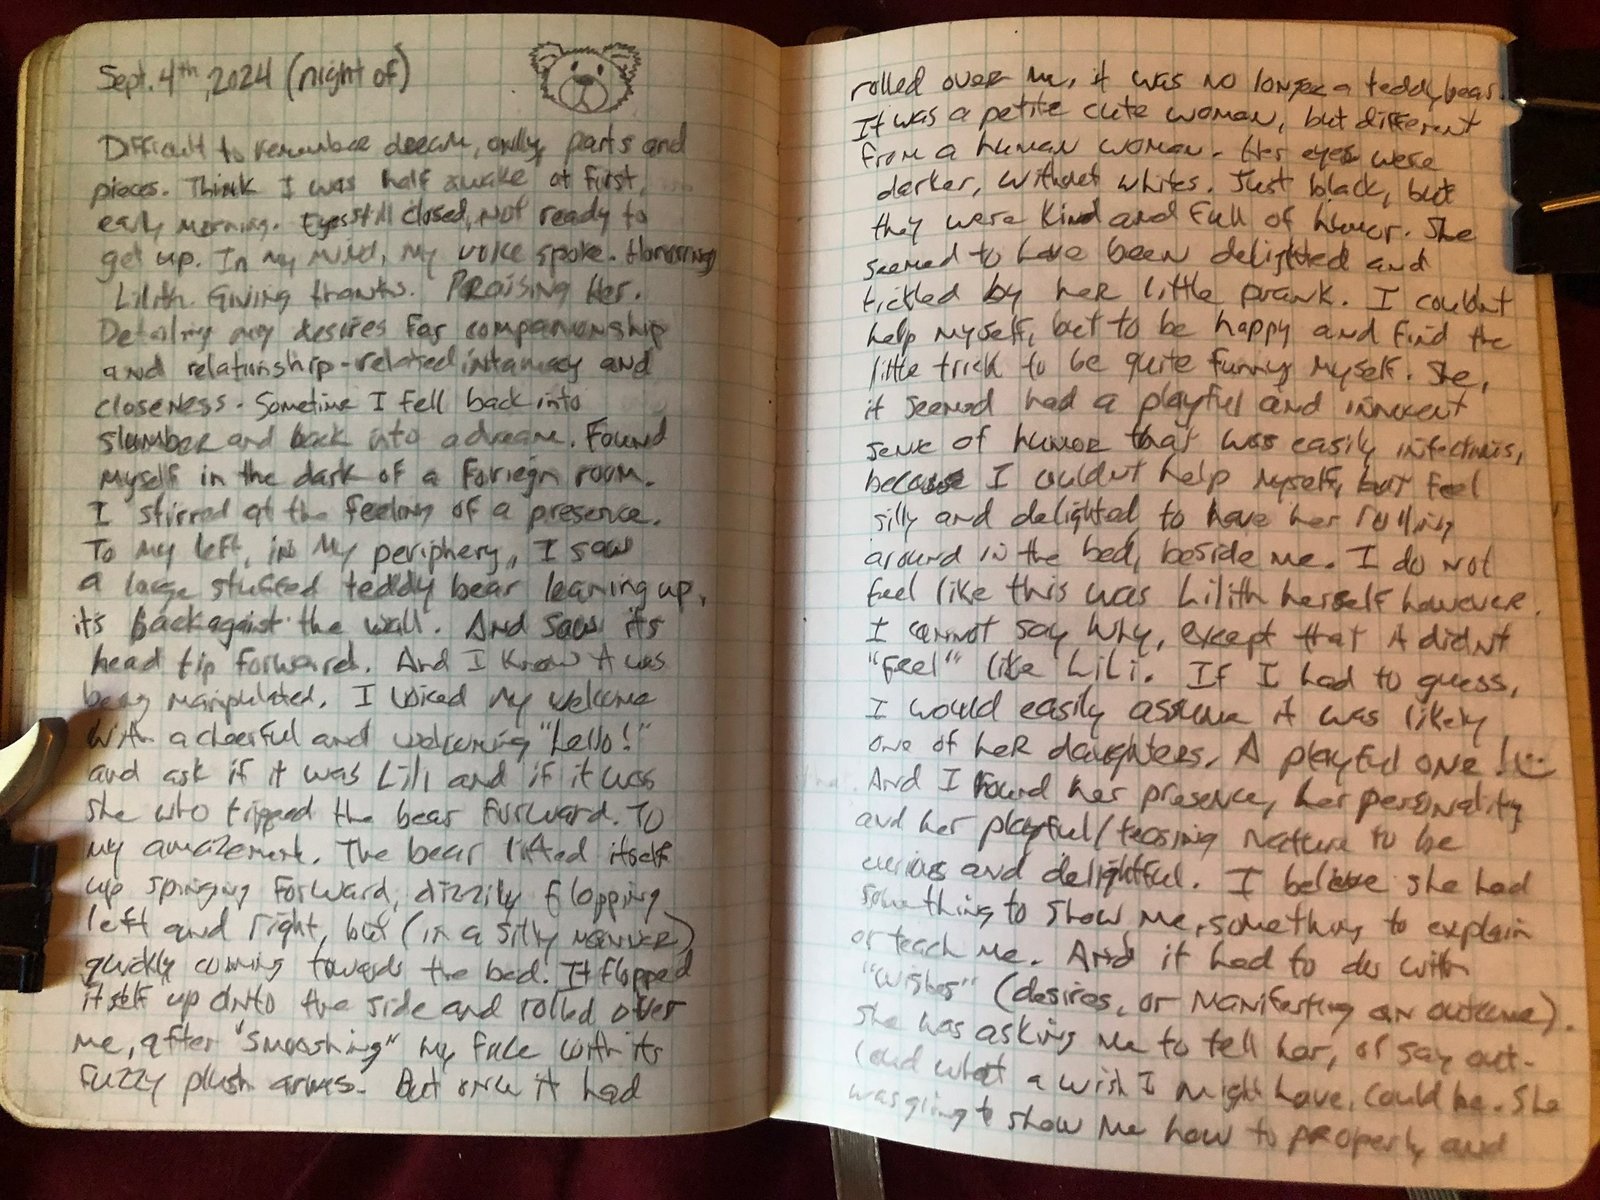 Sept. 4th, 2024 (night of)
Difficult to remember dream, only parts and
pieces. Think I was half awake at first,
early morning. Eyes still closed, not ready to
get up. In my mind, my voice spoke. Honoring
Lilith. Giving thanks. Praising Her.
Detailing my desires for companionship
and relationship-related intamacy and
closeness. Sometime I fell back into
slumber and back into a dream. Found
myself in the dark of a foriegn room.
I stirred at the feeling of a presence.
To my left, in my periphery, I saw
a large stuffed teddy bear leaning up,
it's back against the wall. And saw its
head tip forward. And I knew it was
being manipulated. I voiced my welcome
with a cheerful and welcoming "hello!"
and ask if it was Lili and if it was
she who tipped the bear forward. To
my amazement. The bear lifted itself
up springing forward, dizzily flopping
left and right, but (in a silly manner)
quickly coming towards the bed. It flopped
itself up onto the side and rolled over
me, after "smooshing" my face with its
fuzzy plush arms. But once it had
rolled over me, it was no longer a teddy bear.
It was a petite cute woman, but different
from a human woman. Her eyes were
darker, without whites. Just black, but
they were kind and full of humor. She
seemed to have been delighted and
tickled by her little prank. I couldnt
help myself, but to be happy and find the
little trick to be quite funny myself. She,
it seemed had a playful and innocent
sense of humor that was easily infectious,
because I couldnt help myself, but feel
silly and delighted to have her rolling
around in the bed, beside me. I do not
feel like this was Lilith herself however.
I cannot say why, except that it didnt
"feel" like Lili. If I had to guess,
I would easily assume it was likely
one of her daughters. A playful one!
And I found her presence, her personality
and her playful/teasing nature to be
curious and delightful. I believe she had
something to show me, something to explain
or teach me. And it had to do with
"wishes" (desires, or manifesting an outcome).
She was asking me to tell her, or say out-
loud what a wish I might have, could be. She
was going to show me how to properly and